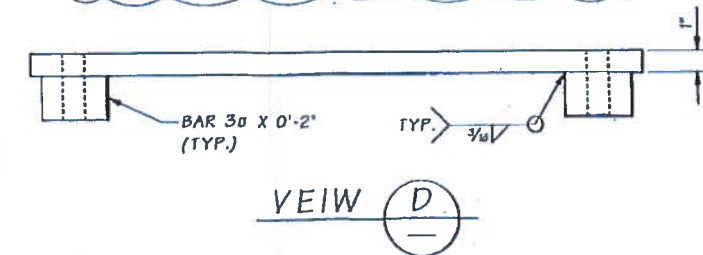 1"
BAR 3▫ X 0'-2"
(TYP.)
TYP.
3/16
VEIW
D
—